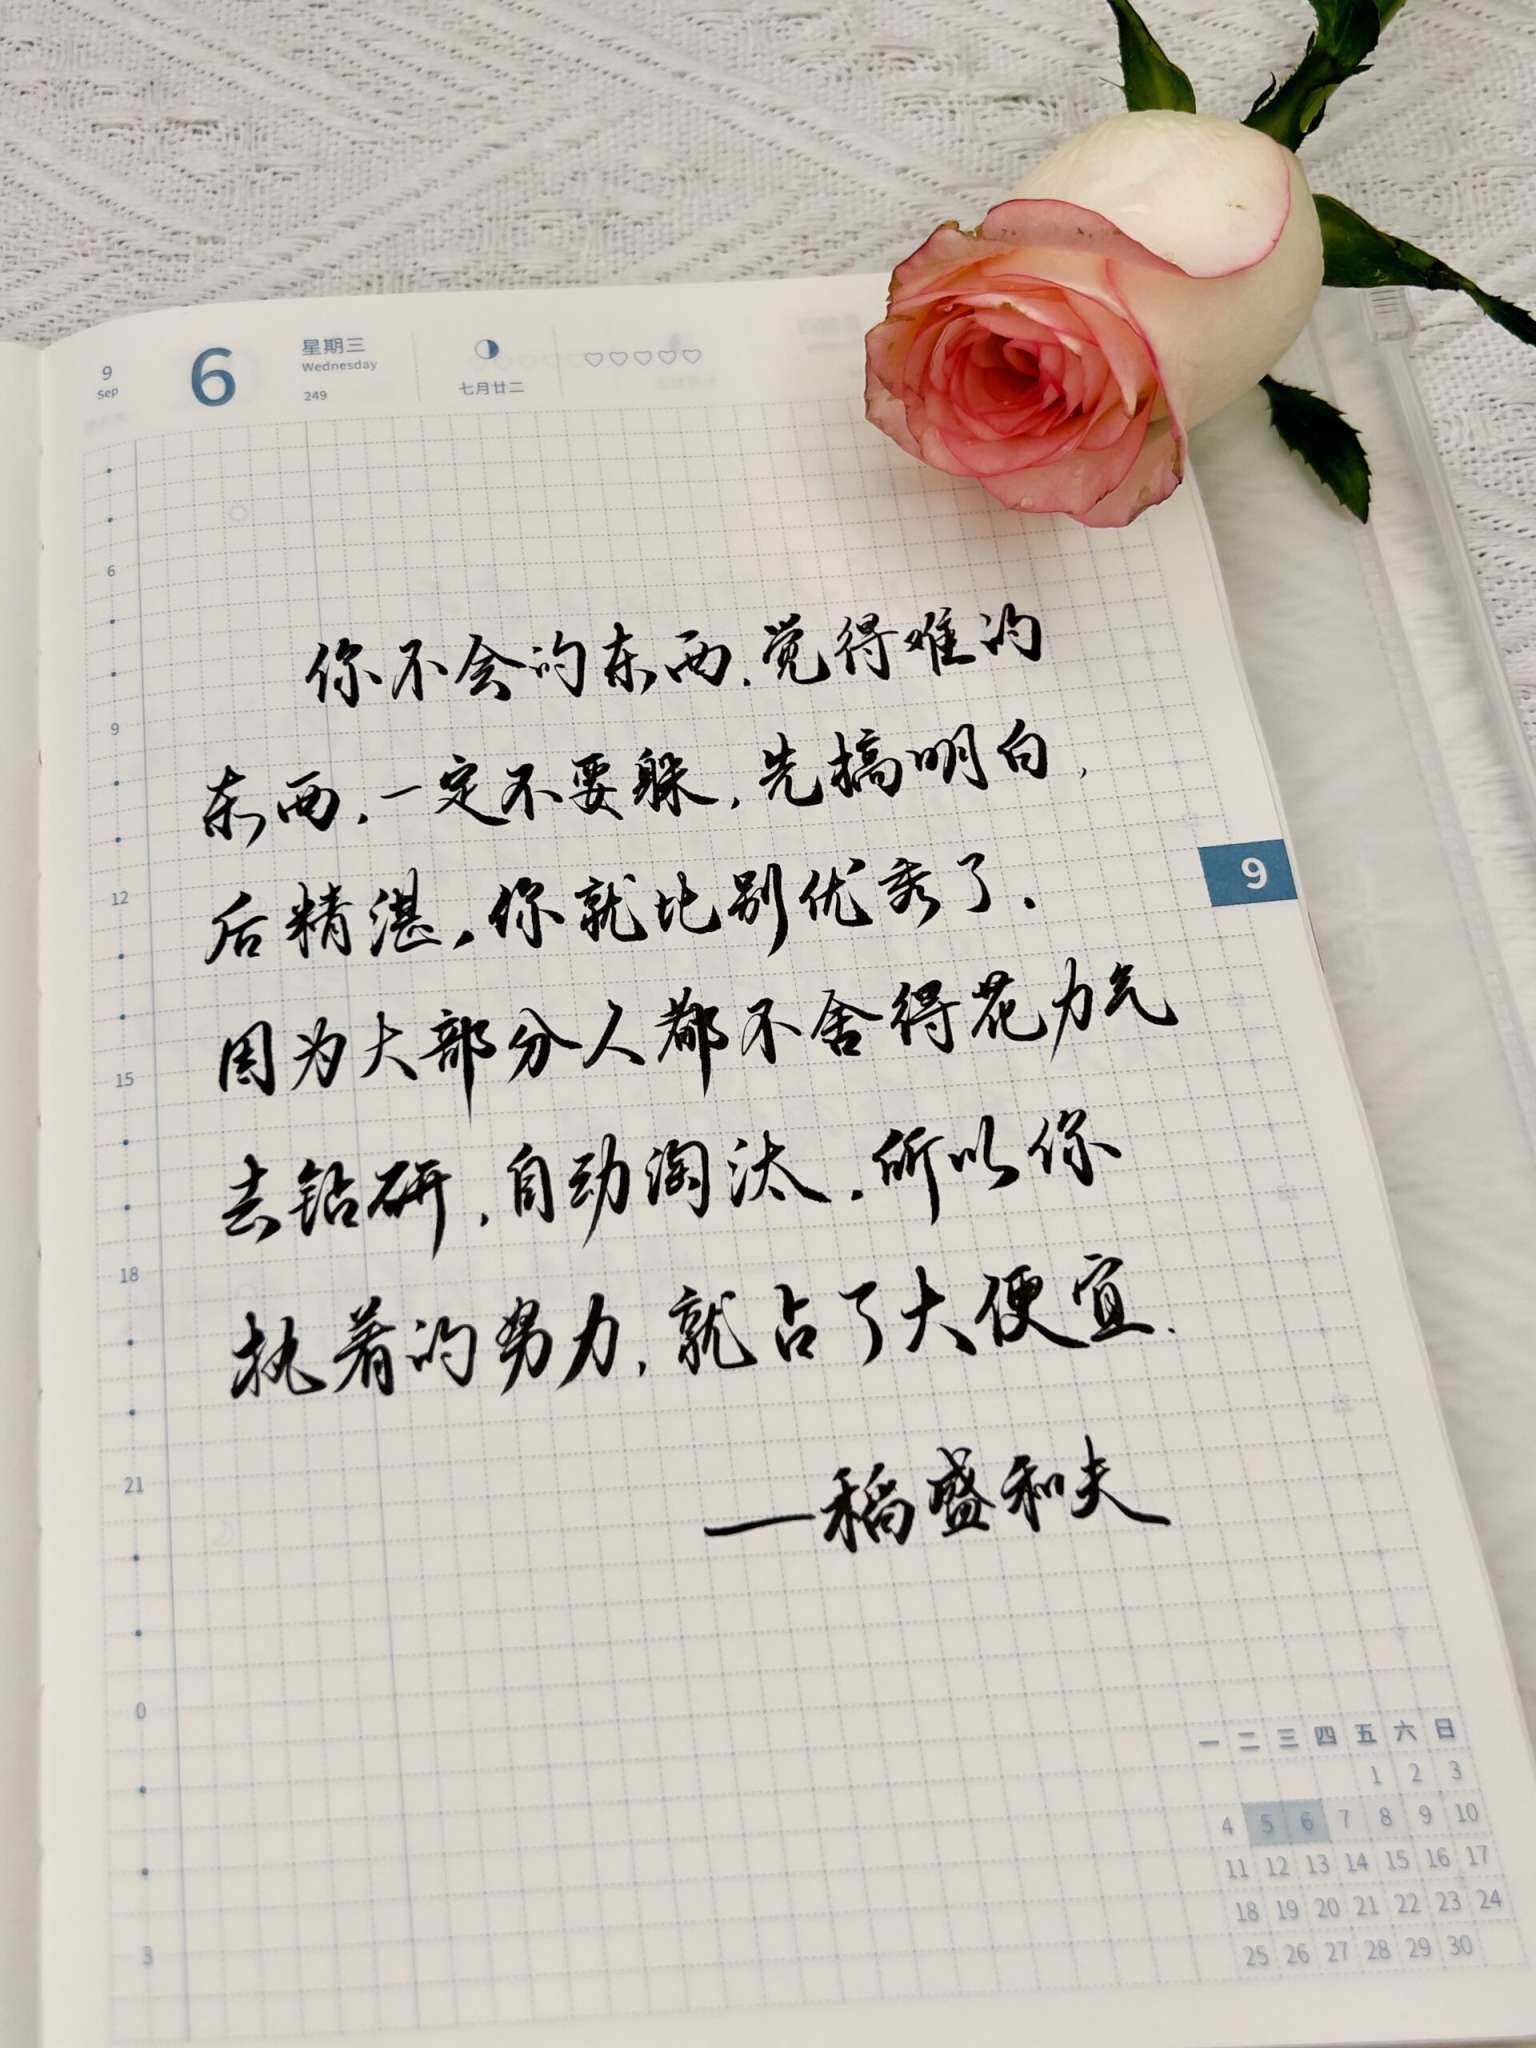 9 6 星期三
Sep Wednesday
249 七月廿二
6
9
12
15
18
21
0
3
你不会的东西,觉得难的
东西,一定不要躲,先搞明白,
后精湛,你就比别优秀了.
因为大部分人都不舍得花力气
去钻研,自动淘汰.所以你
执着的努力,就占了大便宜.
—稻盛和夫
9
一 二 三 四 五 六 日
1 2 3
4 5 6 7 8 9 10
11 12 13 14 15 16 17
18 19 20 21 22 23 24
25 26 27 28 29 30